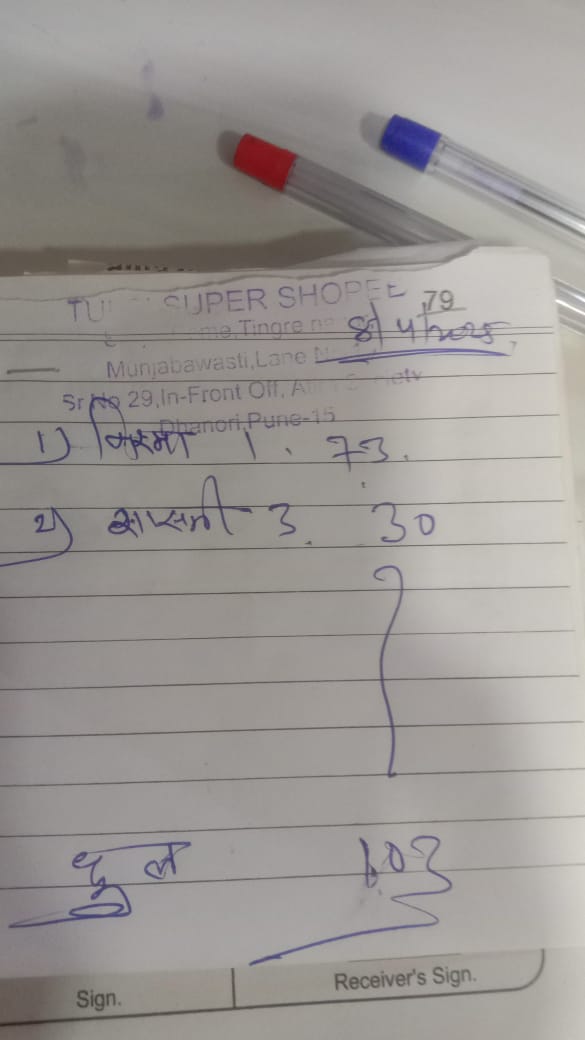 SUPER SHOPEE 79
Tingre 8/4/2025
Munjabawasti, Lane
Sr No 29, In-Front Off,
Dhanori, Pune-15
१) निरमा 1. 73.
२) 3. 30
103
Sign. Receiver's Sign.